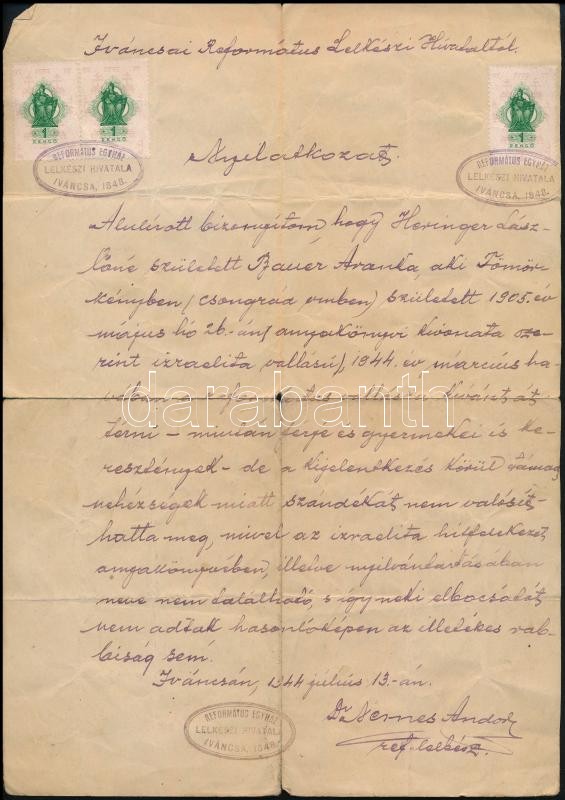 Iváncsai Református Lelkészi Hivataltól.
1 PENGŐ
1 PENGŐ
1 PENGŐ
REFORMÁTUS EGYHÁZ
LELKÉSZI HIVATALA
IVÁNCSA, 1848.
REFORMÁTUS EGYHÁZ
LELKÉSZI HIVATALA
IVÁNCSA, 1848.
Nyilatkozat.
Alulírott bizonyítom hogy Heringer Lász-
lóné született Bauer Aranka, aki Tömör-
kényben (Csongrád vmben) született 1905. év
május hó 26.-án (anyakönyvi kivonata sze-
rint izraelita vallású), 1944. év március ha-
vallásra kívánt át
térni – miután férje és gyermekei is ke-
resztények – de a kijelentkezés körül támadt
nehézségek miatt szándékát nem valósít-
hatta meg, mivel az izraelita hitfelekezet
anyakönyvében, illetve nyilvántartásában
neve nem található, s így neki elbocsátót
nem adtak hasonlóképen az illetékes rab-
biság sem.
Iváncsán, 1944 július 13.-án.
Dr. Nemes Andor
ref. lelkész.
REFORMÁTUS EGYHÁZ
LELKÉSZI HIVATALA
IVÁNCSA, 1848.
darabanth